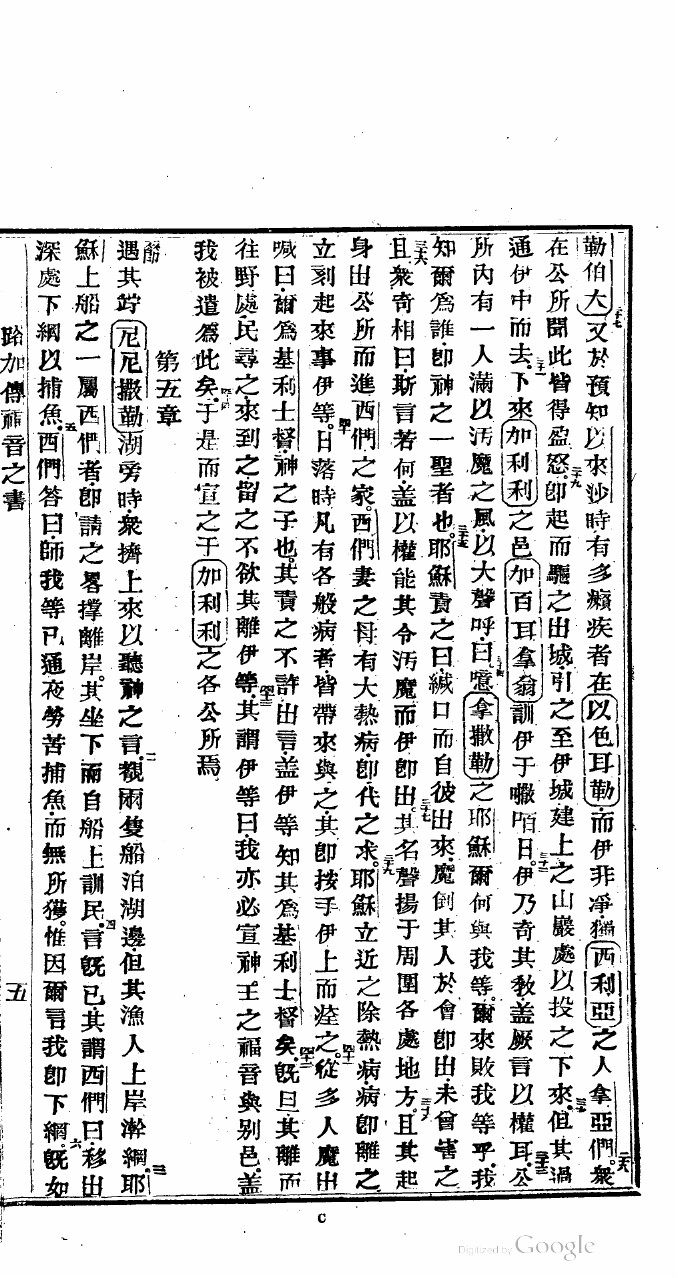 勒伯大又於預知以來沙時有多癩疾者在以色耳勒而伊非凈獨西利亞之人拿亞們衆
在公所聞此皆得盈怒卽起而驅之出城引之至伊城建上之山巖處以投之下來但其過
通伊中而去下來加利利之邑加百耳拿翁訓伊于嚈陌日伊乃奇其敎蓋厥言以權耳公
所內有一人滿以汚魔之風以大聲呼曰噫拿撒勒之耶穌爾何與我等爾來敗我等乎我
知爾爲誰卽神之一聖者也耶穌責之曰緘口而自彼出來魔倒其人於會卽出未曾害之
且衆奇相曰斯言若何蓋以權能其令汚魔而伊卽出其名聲揚于周圍各處地方且其起
身出公所而進西們之家西們妻之母有大熱病卽代之求耶穌立近之除熱病病卽離之
立刻起來事伊等日落時凡有各般病者皆帶來與之其卽按手伊上而痊之從多人魔出
喊曰爾爲基利士督神之子也其責之不許出言蓋伊等知其爲基利士督矣旣旦其離而
往野處民尋之來到之留之不欲其離伊等其謂伊等曰我亦必宣神王之福音與別邑蓋
我被遣爲此矣于是而宣之于加利利之各公所焉
第五章
遇其竚尼尼撒勒湖旁時衆擠上來以聽神之言觀兩隻船泊湖邊但其漁人上岸澣網耶
穌上船之一屬西們者卽請之畧撑離岸其坐下而自船上訓民言旣已其謂西們曰移出
深處下網以捕魚西們答曰師我等已通夜勞苦捕魚而無所獲惟因爾言我卽下網旣如
路加傳福音之書
五
C
Digitized by Google